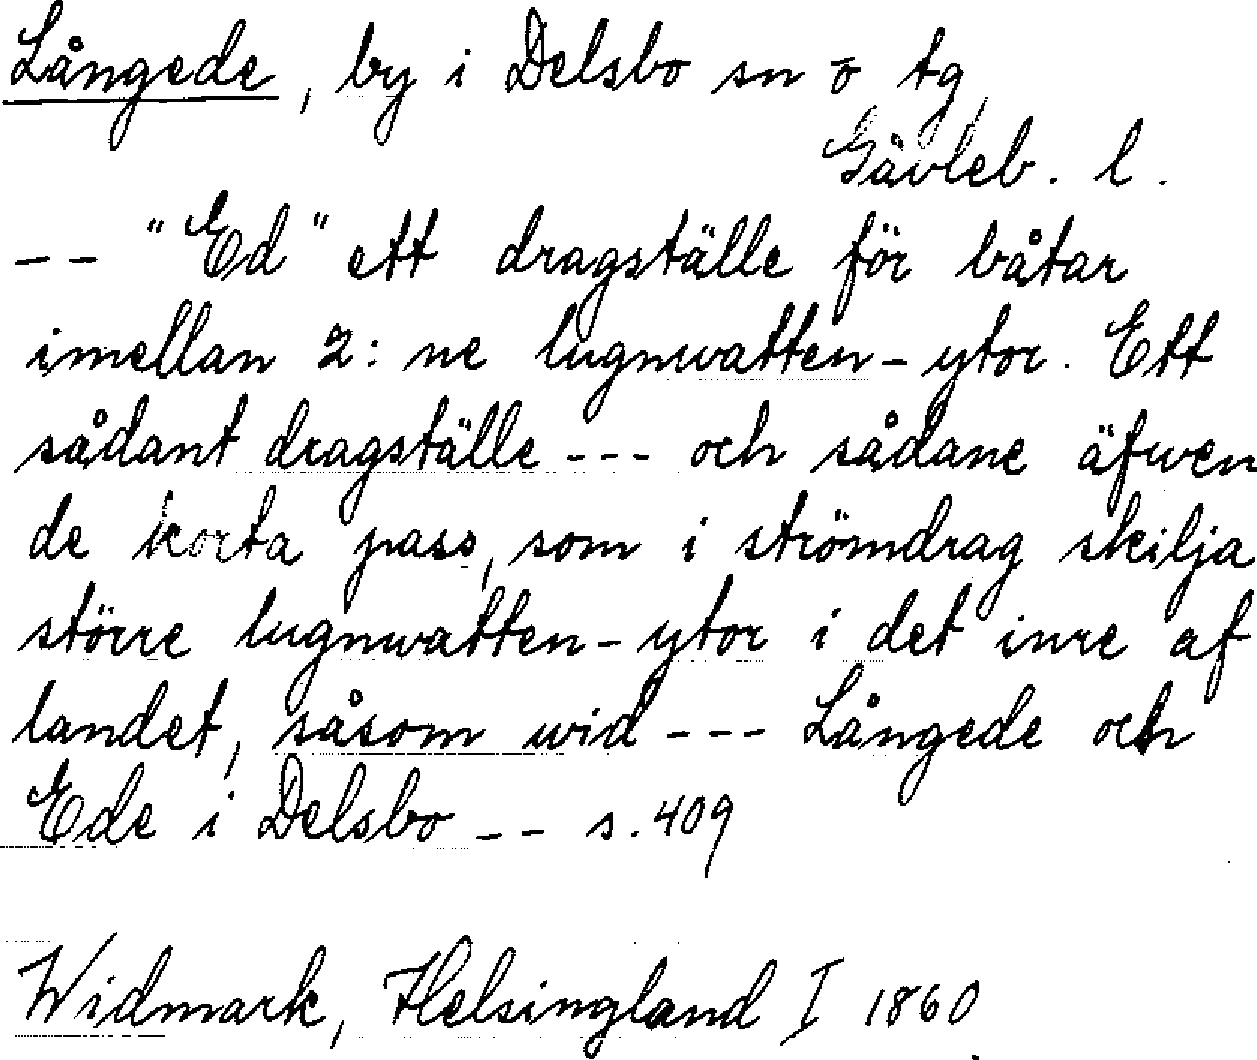 Långede, by i Delsbo sn o tg,
Gävleb. l.
-- "Ed" ett dragställe för båtar
imellan 2:ne lugnwatten-ytor. Ett
sådant dragställe --- och sådane äfwen
de korta pass, som i strömdrag skilja
större lugnwatten-ytor i det inre af
landet, såsom wid --- Långede och
Ede i Delsbo -- s. 409
Widmark, Helsingland I 1860